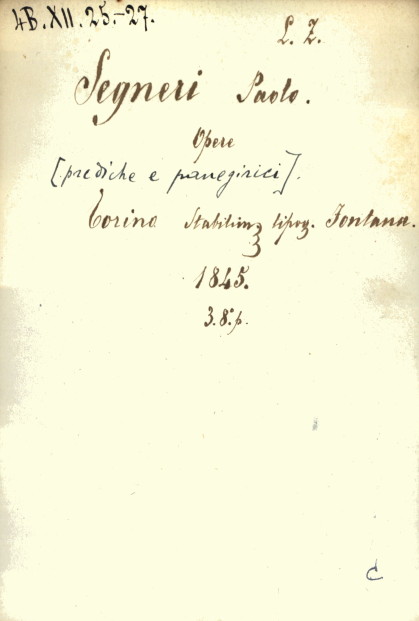 4B.XII.25.-27.
L. Z.
Segneri Paolo.
Opere
[prediche e panegirici].
Torino Stabilim tipog. Fontana.
1845.
3.8.°p.
C